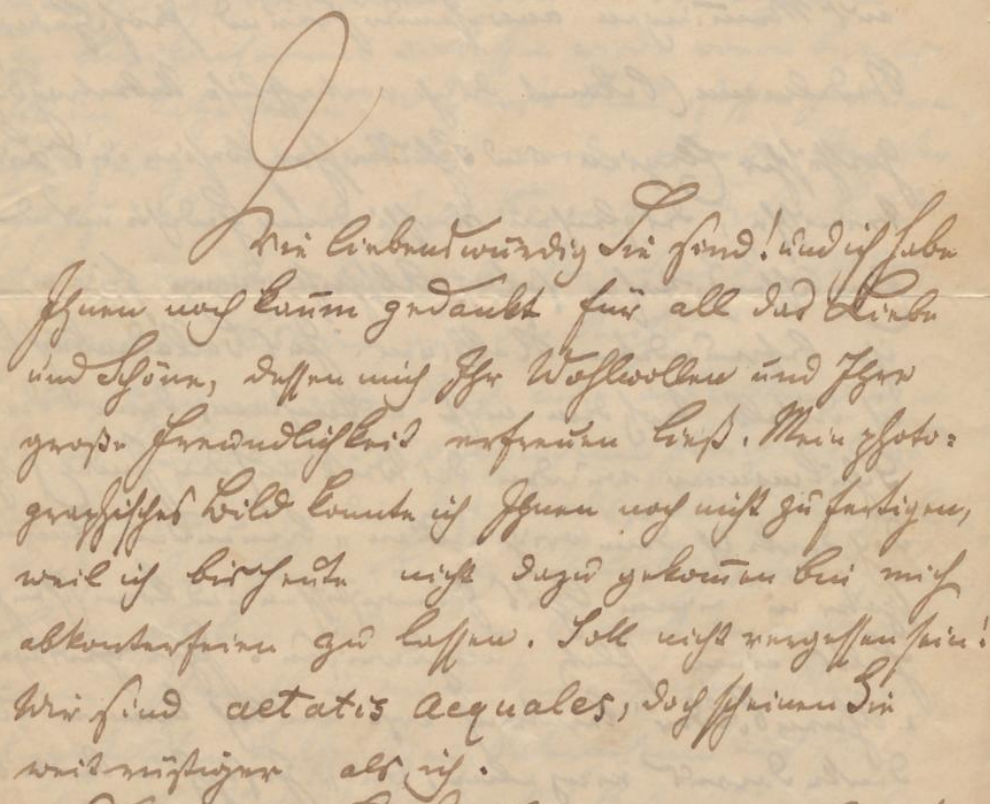 Wie liebenswürdig Sie sind! und ich habe
Ihnen noch kaum gedankt für all das Liebe
und Schöne, dessen mich Ihr Wohlwollen und Ihre
große Freundlichkeit erfreuen ließ. Mein photo=
graphisches Bild konnte ich Ihnen noch nicht zu fertigen,
weil ich bis heute nicht dazu gekom̄en bin mich
abkonterfeien zu lassen. Soll nicht vergessen sein!
Wir sind aetatis aequales, doch scheinen Sie
weit rüstiger als ich.